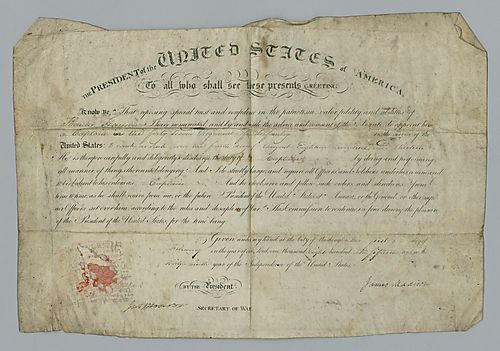 THE PRESIDENT of the UNITED STATES of AMERICA,
To all who shall see these presents GREETING:
Know Ye, That reposing special trust and confidence in the patriotism, valor, fidelity and abilities of
I have nominated, and by and with the advice and consent of the Senate, do appoint him
a Captain in the Regiment of in the service of the
United States: to rank as such from the day of eighteen hundred and
He is therefore carefully and diligently to discharge the duty of Captain by doing and performing
all manner of things thereunto belonging. And I do strictly charge and require all Officers and soldiers under his command
to be obedient to his orders as Captain And he is to observe and follow such orders and directions from
time to time, as he shall receive from me, or the future President of the United States of America, or the General or other supe-
rior Officers set over him, according to the rules and discipline of War. This Commission to continue in force during the pleasure
of the President of the United States, for the time being.
Given under my hand at the City of Washington this first day of
in the year of our Lord one thousand eight hundred and fifteen and in the
thirty ninth year of the Independence of the United States.
By the President
James Madison
SECRETARY OF WAR